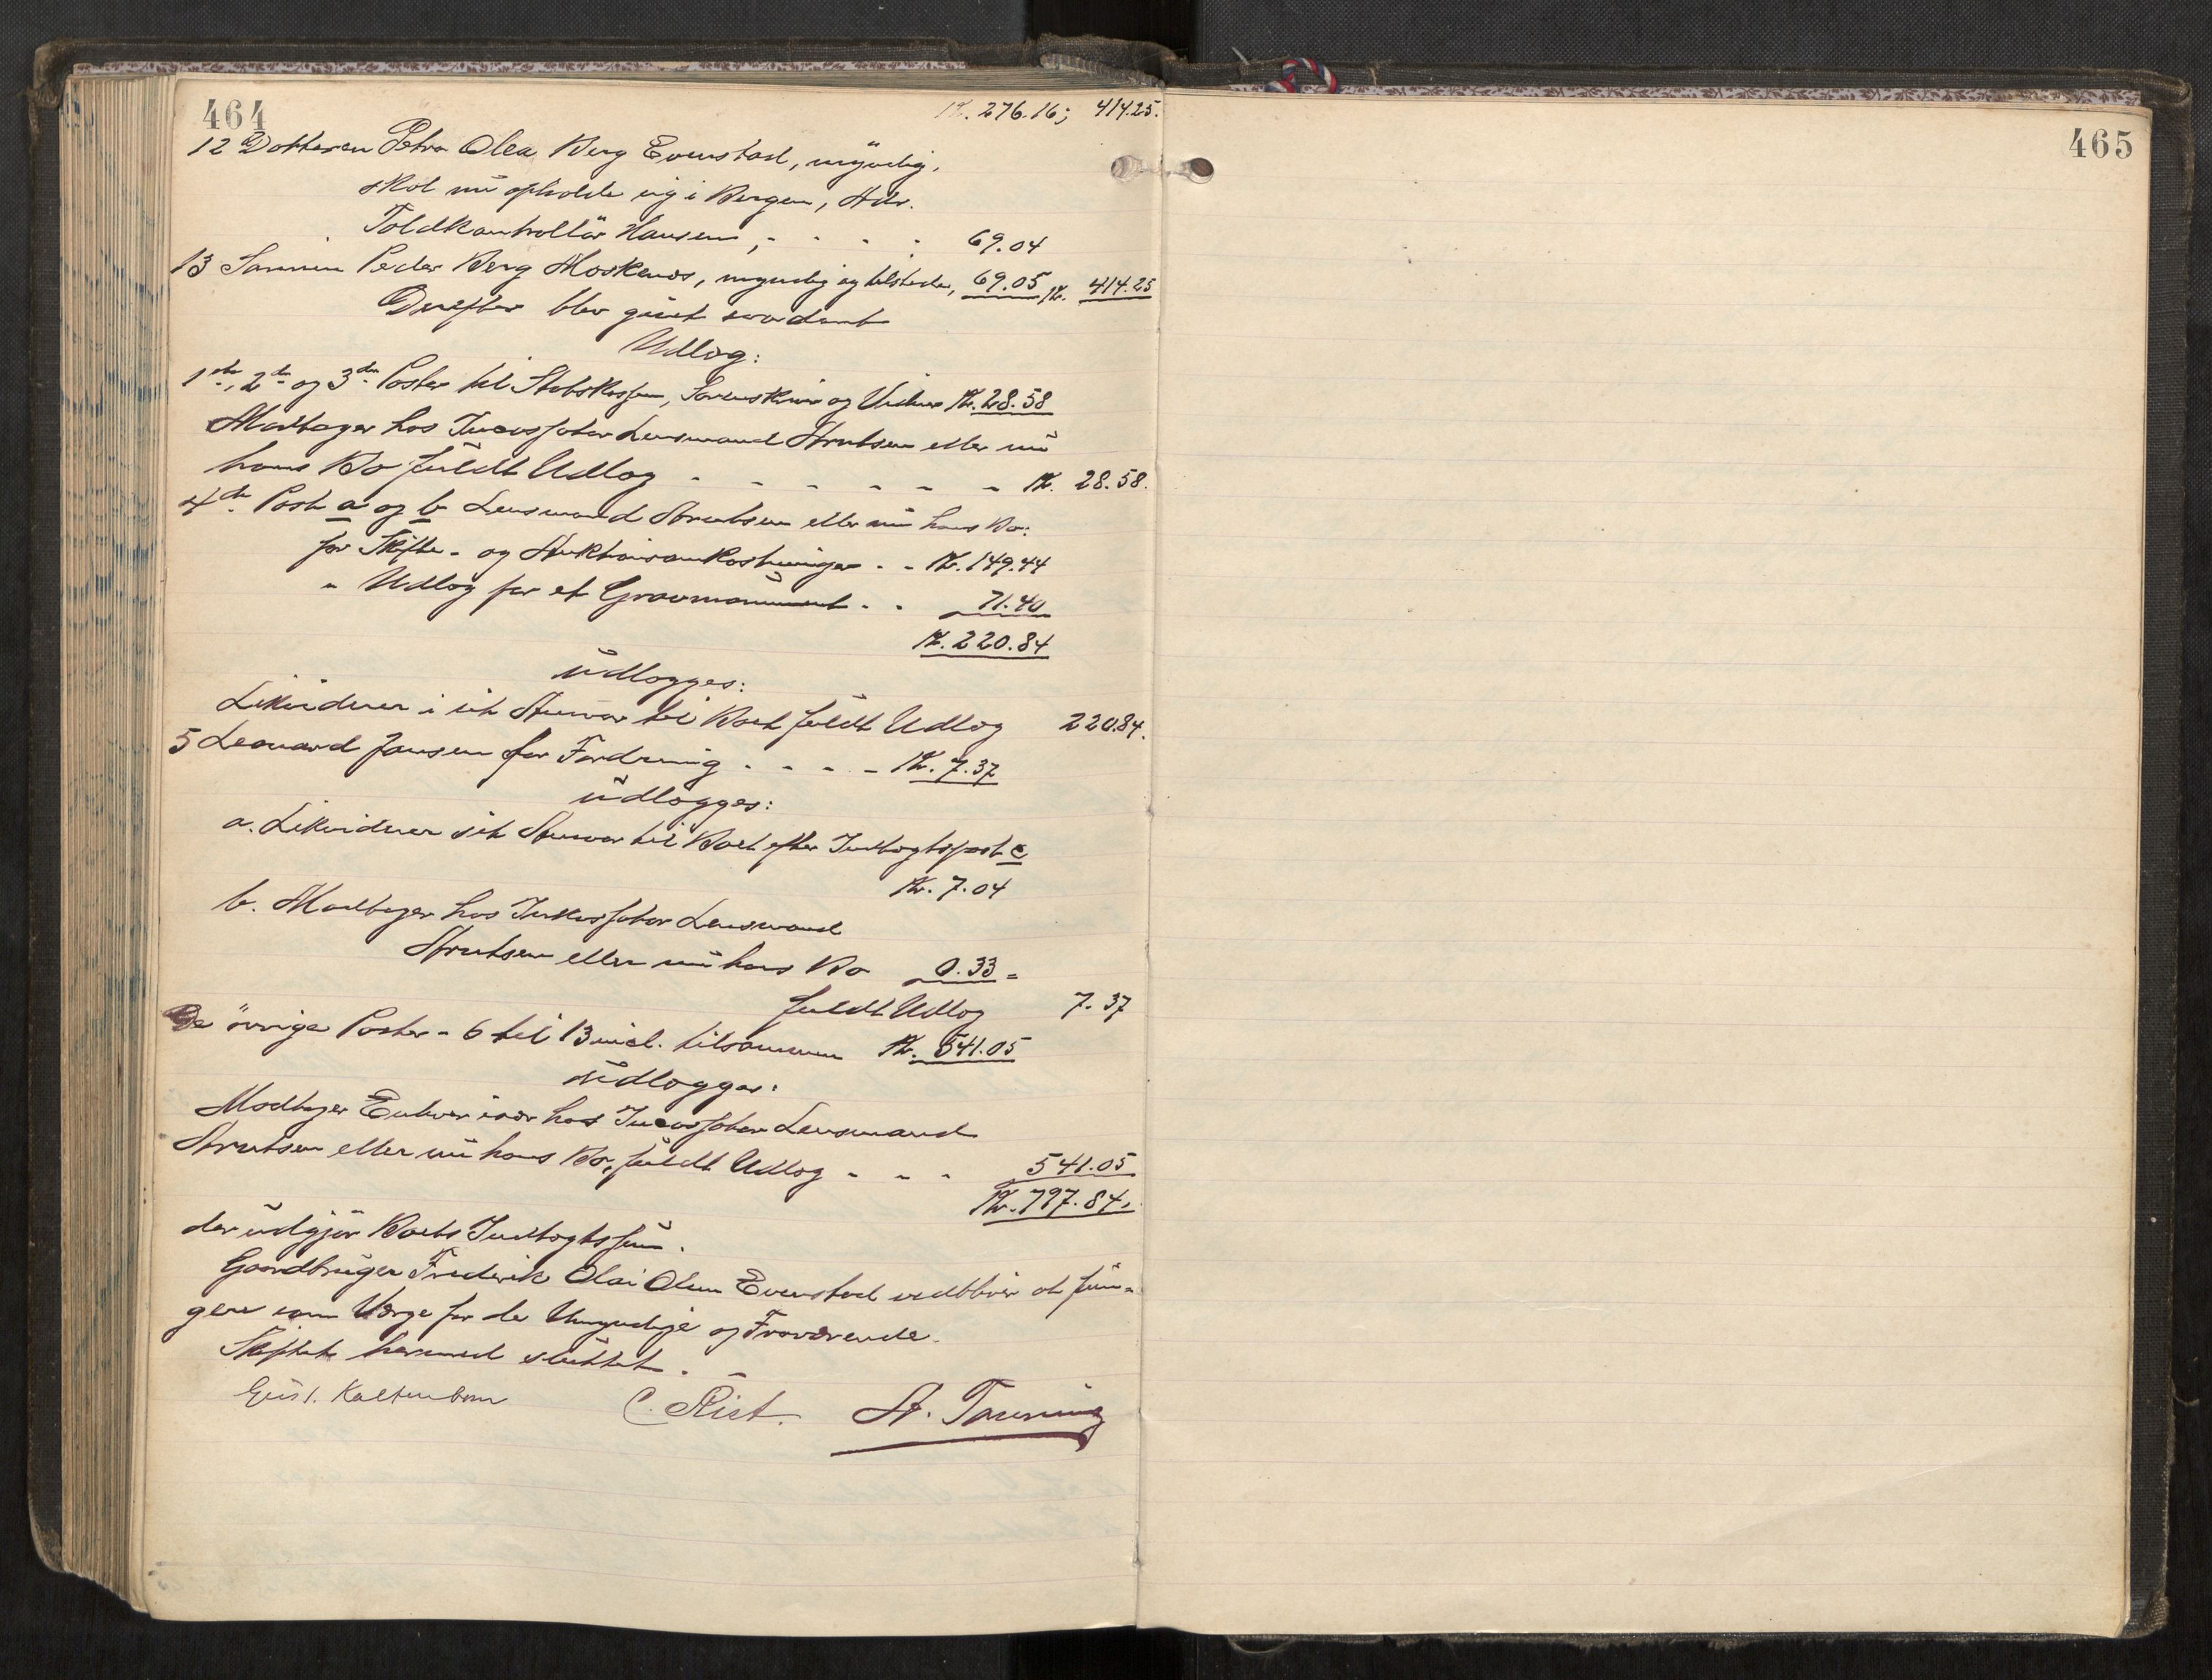 464
Kr. 276.16; 414.25.
12 Datteren Petra Olea Berg Evenstad, myndig,
skal nu opholde sig i Bergen, Adr.
Toldkontrollör Hansen, - - - - 69.04
13 Sønnen Peder Berg Moskenæs, myndig og tilstede, 69.05 Kr. 414.25
Derefter blev gjort saadant
Udlæg:
1ste, 2den og 3die Poster til Statskassen, Sorenskriver og Vidner Kr. 28.58
Modtager hos Incassator Lensmand Arntsen eller nu
hans Bo fuldt Udlæg - - - - - - Kr. 28.58.
4de Post a og b Lensmand Arntsen eller nu hans Bo:
for Skifte- og Auktionsomkostninger - - Kr. 149.44
" Udlæg for et Gravmonument - - 71.40
Kr. 220.84
udlægges:
Likviderer i sit Ansvar til Boet fuldt Udlæg 220.84.
5 Leonard Jansen for Fordring - - - - Kr. 7.37
udlægges:
a. Likviderer sit Ansvar til Boet efter Indtægtspost c
Kr. 7.04
b. Modtager hos Inkassator Lensmand
Arntsen eller nu hans Bo 0.33 =
fuldt Udlæg 7.37
De övrige Poster - 6 til 13 incl. tilsammen Kr. 541.05
udlægges:
Modtager Enhver især hos Incassator Lensmand
Arntsen eller nu hans Bo, fuldt Udlæg - - - 541.05
Kr. 797.84,
der udgjör Boets Indtægtssum.
Gaardbruger Frederik Olai Olsen Evenstad vedbliver at fun-
gere som Værge for de Umyndige og Fraværende.
Skiftet hermed sluttet. -
Gust. Kaltenborn C. Rist. A. Tanning
465